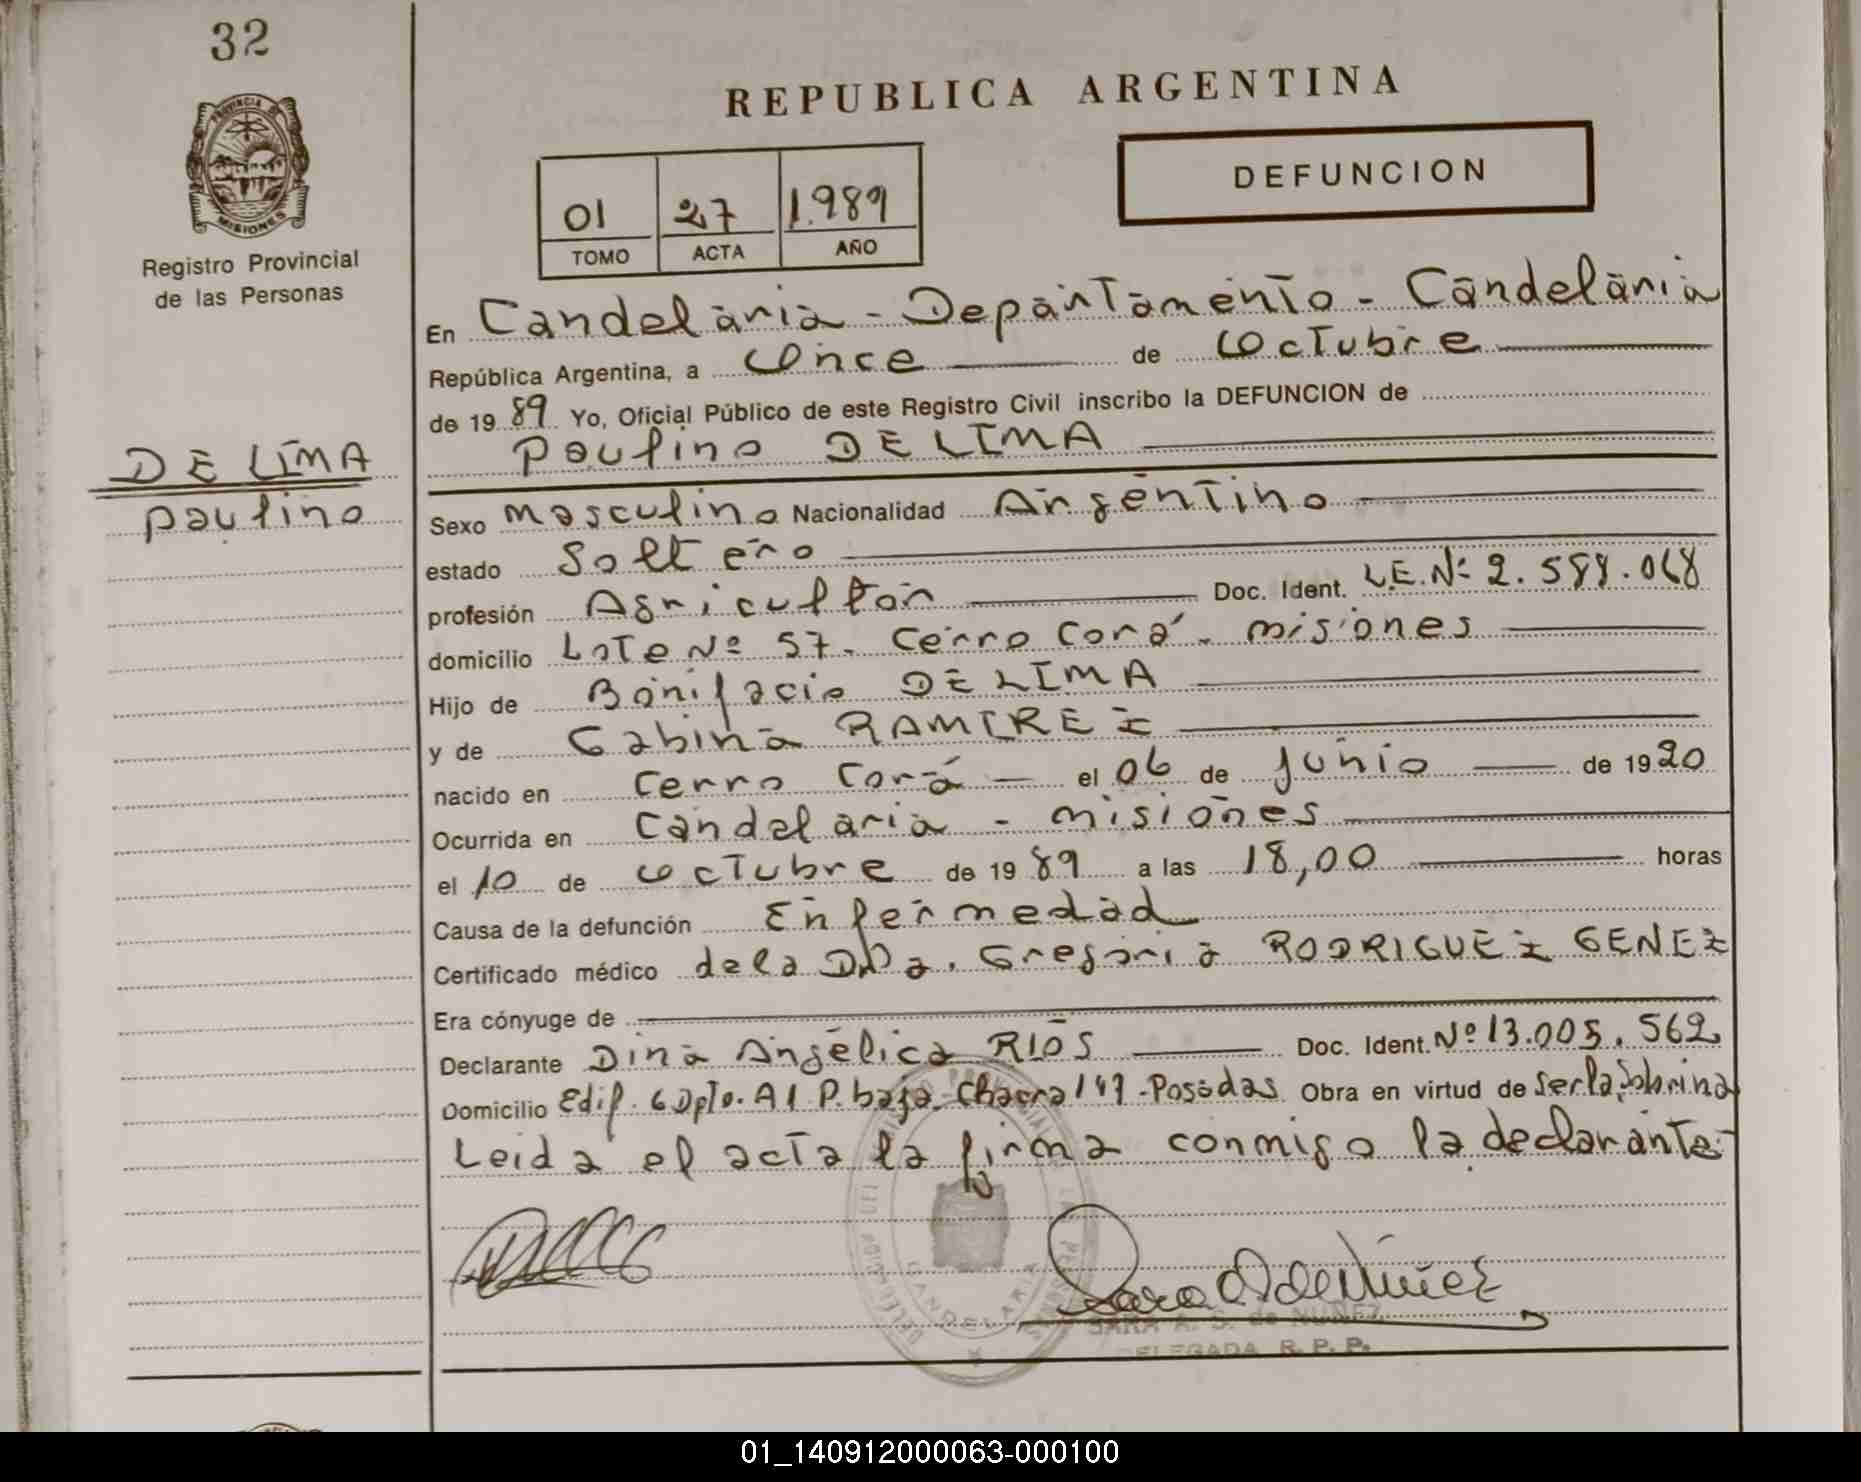 32
PROVINCIA DE
MISIONES
Registro Provincial
de las Personas
REPUBLICA ARGENTINA
DEFUNCION
01 27 1.989
TOMO ACTA AÑO
En Candelaria - Departamento - Candelaria
República Argentina, a Once de Octubre
de 19 89 Yo, Oficial Público de este Registro Civil inscribo la DEFUNCION de
Paulino DE LIMA
DE LIMA
Paulino
Sexo masculino Nacionalidad Argentino
estado Soltero
profesión Agricultor Doc. Ident. L.E. Nº 2.588.068
domicilio Lote Nº 57. Cerro Corá. misiones
Hijo de Bonifacio DE LIMA
y de Gabina RAMIREZ
nacido en Cerro Corá el 06 de junio de 1920
Ocurrida en Candelaria - misiones
el 10 de octubre de 19 89 a las 18,00 horas
Causa de la defunción Enfermedad
Certificado médico de la Dra. Gregoria RODRIGUEZ GENEZ
Era cónyuge de
Declarante Dina Angélica RIOS Doc. Ident. Nº 13.005.562
Domicilio Edif. 6 Dpto. A1 P. baja. Chacra 149 - Posadas Obra en virtud de ser la Sobrina
Leida el acta la firma conmigo la declarante.
CANDELARIA
SARA A. S. de NUÑEZ
DELEGADA R. P. P.
01_140912000063-000100